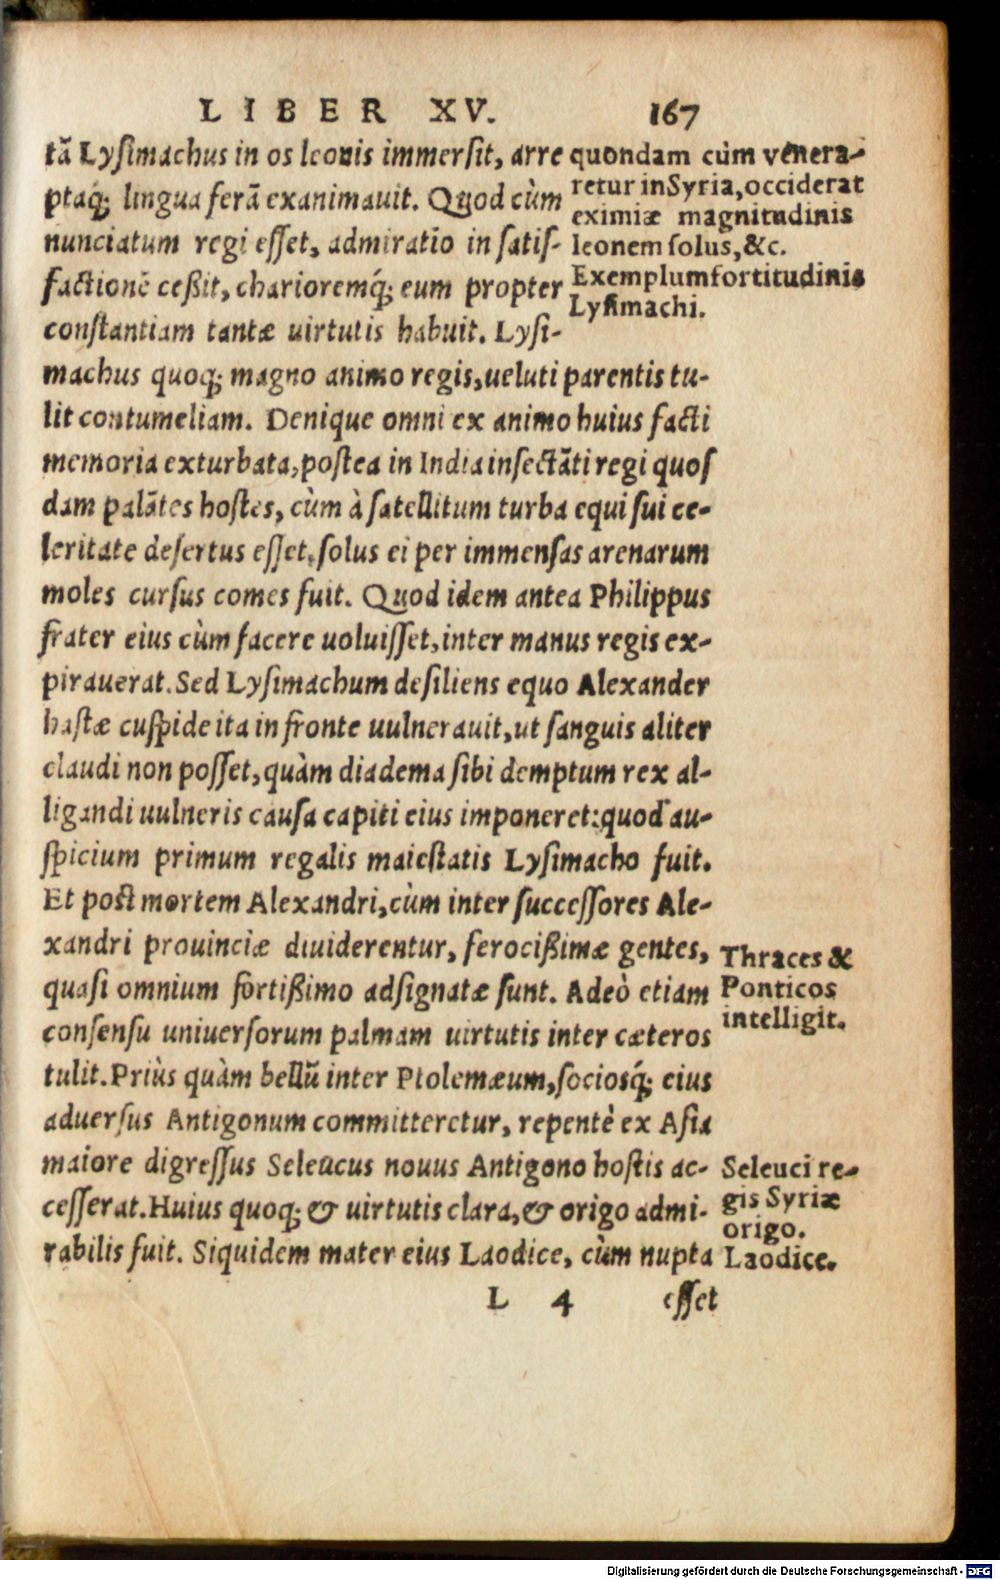 LIBER XV. 167
tā Lysimachus in os leonis immersit, arre
ptaq́; lingua ferā exanimauit. Quod cùm
nunciatum regi esset, admiratio in satis-
factionē ceßit, charioremq́; eum propter
constantiam tantæ uirtutis habuit. Lysi-
quondam cùm venera-
retur in Syria, occiderat
eximiæ magnitudinis
leonem solus, &c.
Exemplum fortitudinis
Lysimachi.
machus quoq; magno animo regis, ueluti parentis tu-
lit contumeliam. Denique omni ex animo huius facti
memoria exturbata, postea in India insectāti regi quos
dam palātes hostes, cùm à satellitum turba equi sui ce-
leritate desertus esset, solus ei per immensas arenarum
moles cursus comes fuit. Quod idem antea Philippus
frater eius cùm facere uoluisset, inter manus regis ex-
pirauerat. Sed Lysimachum desiliens equo Alexander
hastæ cuspide ita in fronte uulnerauit, ut sanguis aliter
claudi non posset, quàm diadema sibi demptum rex al-
ligandi uulneris causa capiti eius imponeret: quod au-
spicium primum regalis maiestatis Lysimacho fuit.
Et post mortem Alexandri, cùm inter successores Ale-
xandri prouinciæ diuiderentur, ferocißimæ gentes,
quasi omnium fortißimo adsignatæ sunt. Adeò etiam
consensu uniuersorum palmam uirtutis inter cæteros
tulit. Priùs quàm bellū inter Ptolemæum, sociosq́; eius
aduersus Antigonum committeretur, repentè ex Asia
maiore digressus Seleucus nouus Antigono hostis ac-
cesserat. Huius quoq; & uirtutis clara, & origo admi-
rabilis fuit. Siquidem mater eius Laodice, cùm nupta
Thraces &
Ponticos
intelligit.
Seleuci re-
gis Syriæ
origo.
Laodice.
L 4 esset
Digitalisierung gefördert durch die Deutsche Forschungsgemeinschaft - DFG